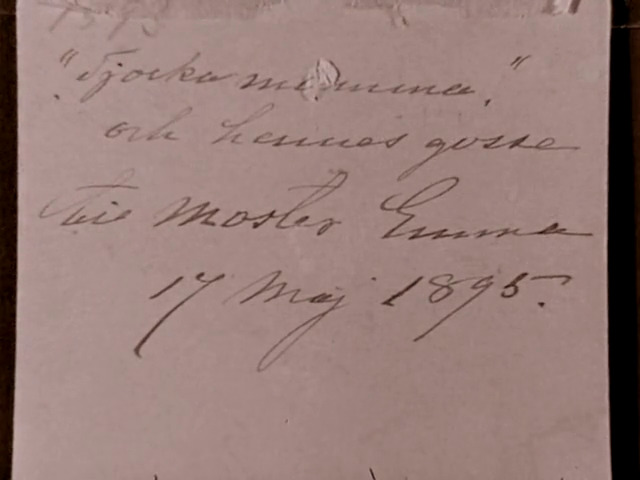 "Tjocka mamma."
och hennes gosse
till Moster Emma
17 Maj 1895.